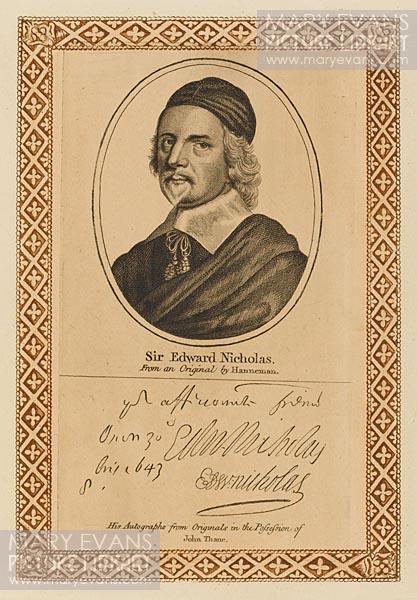 MARY EVANS
PICTURE LIBRARY
www.maryevans.com
Sir Edward Nicholas.
From an Original by Hanneman.
yr affectionate friend
Edw. Nicholas
1643
8.
Edw: nicholas
His Autographs from Originals in the Possession of
John Thane.
MARY EVANS
PICTURE LIBRARY
www.maryevans.com